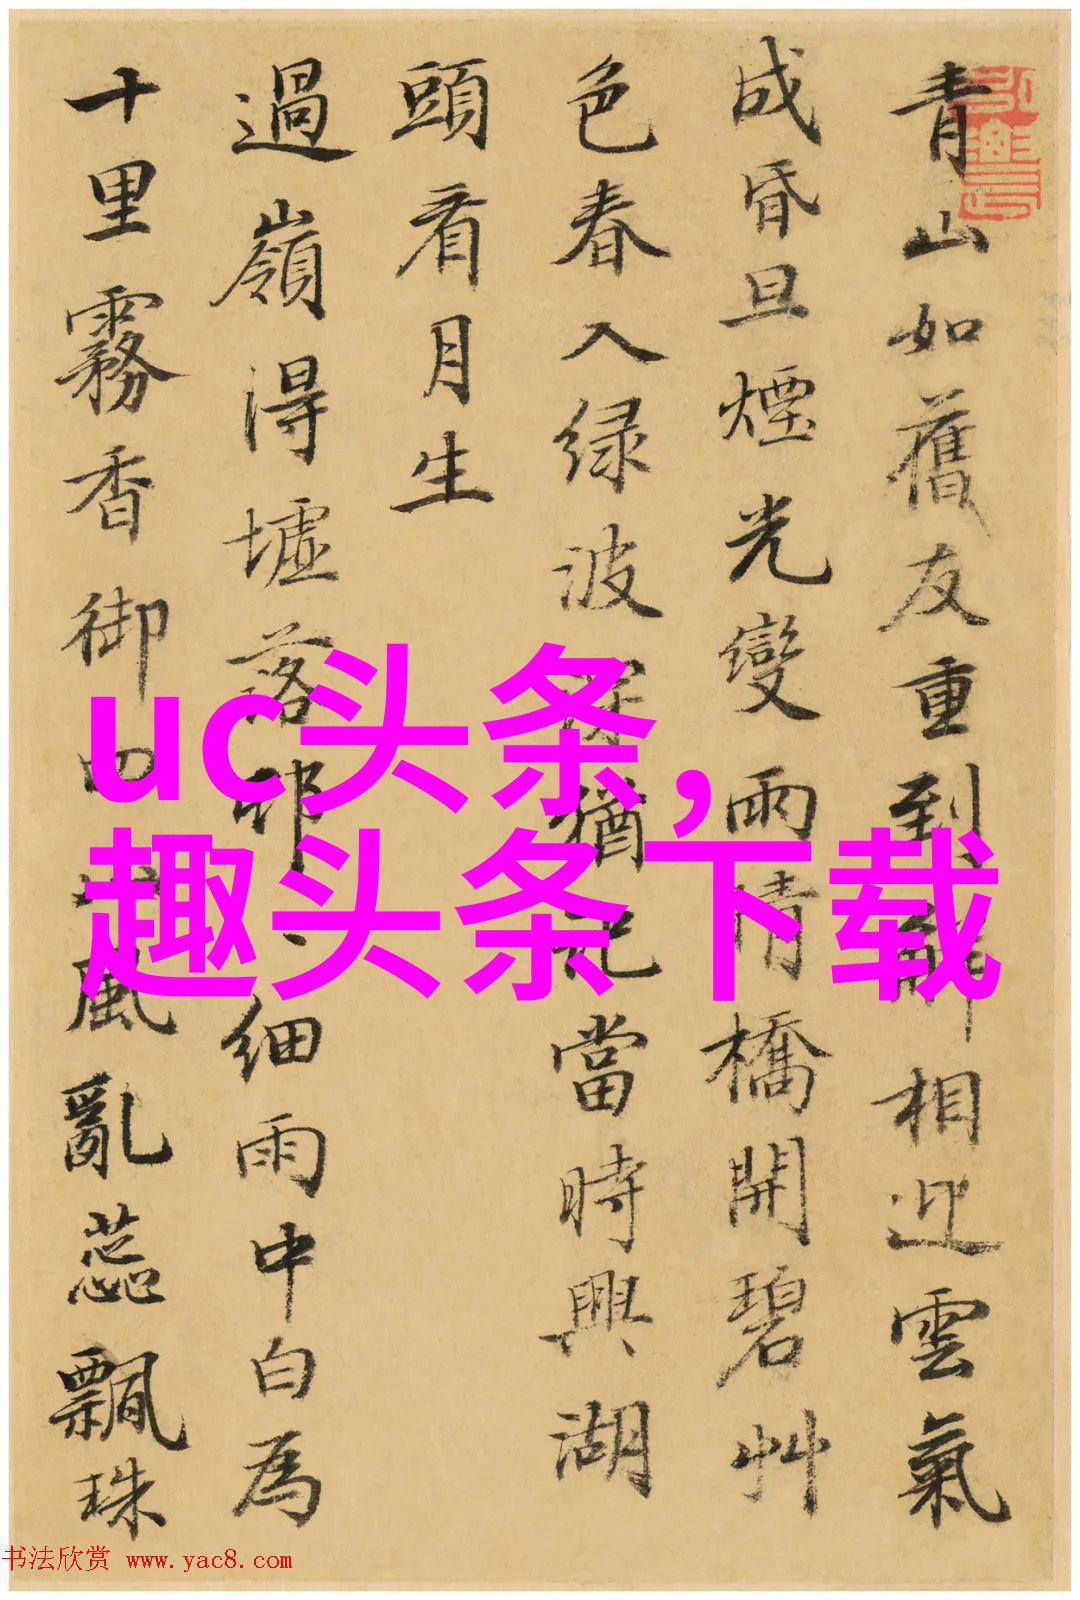 青山如舊友重到解相迎雲氣
成昏旦煙光變雨情橋開碧艸
色春入绿波深猶記當時興湖
頭看月生
過嶺得墟落邨、细雨中白為
十里霧香御四風亂蕊飄珠
uc头条,
趣头条下载
书法欣赏 www.yac8.com